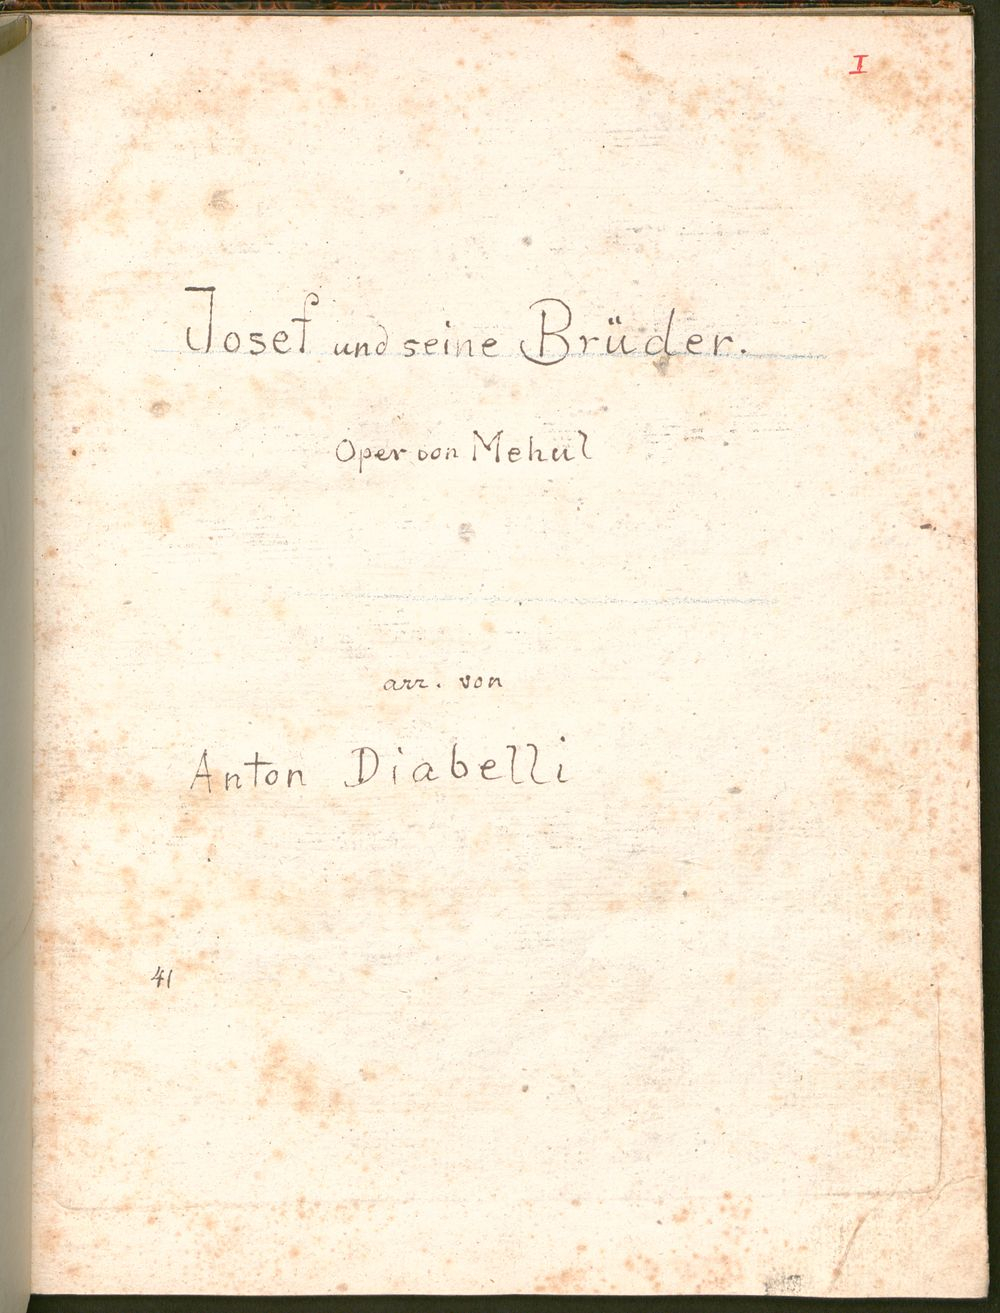 I
Josef und seine Brüder.
Oper von Mehul
arr. von
Anton Diabelli
41